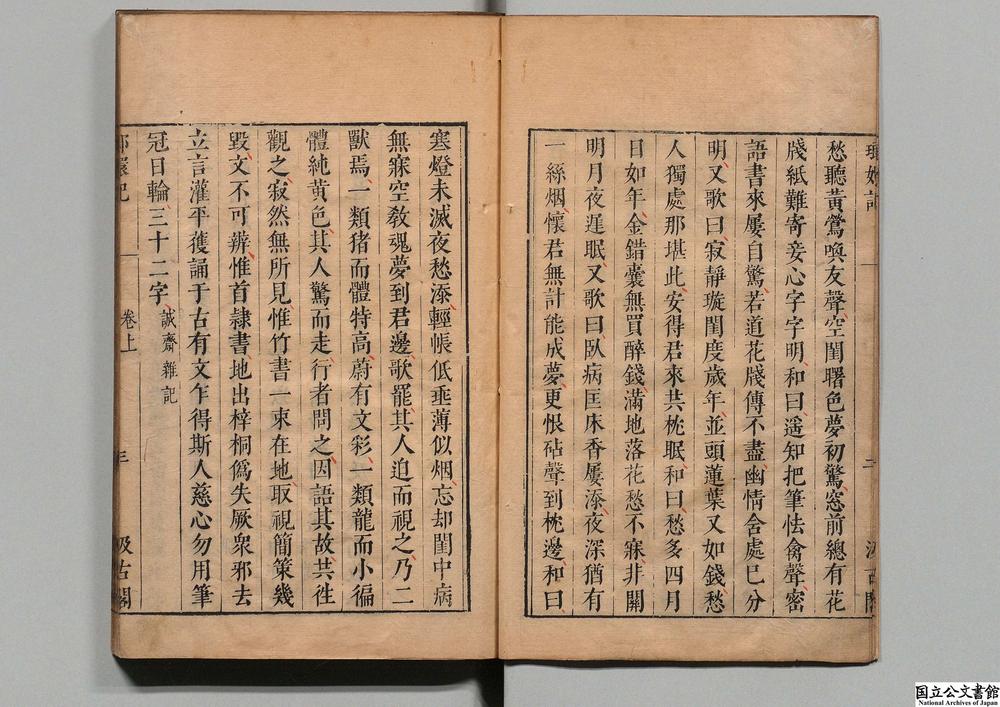 愁聽黃鶯喚友聲空閨曙色夢初驚窓前總有花
牋紙難寄妾心字字明和曰遥知把筆怯禽聲密
語書來屢自驚若道花牋傳不盡幽情舍處已分
明又歌曰寂靜璇閨度歲年並頭蓮葉又如錢愁
人獨處那堪此安得君來共枕眠和曰愁多四月
日如年金錯囊無買醉錢滿地落花愁不寐非關
明月夜遅眠又歌曰臥病匡床香屢添夜深猶有
一絲烟懷君無計能成夢更恨砧聲到枕邊和曰
寒燈未滅夜愁添輕帳低垂薄似烟忘却閨中病
無寐空敎魂夢到君邊歌罷其人迫而視之乃二
獸焉一類猪而體特高蔚有文彩一類龍而小徧
體純黄色其人驚而走行者問之因語其故共徃
觀之寂然無所見惟竹書一束在地取視簡策幾
毀文不可辨惟首隷書地出梓桐僞失厥衆邪去
立言灌平䕶誦于古有文乍得斯人慈心勿用筆
冠日輪三十二字 誠齋雜記
嬛記
卷上
三
汲古閣